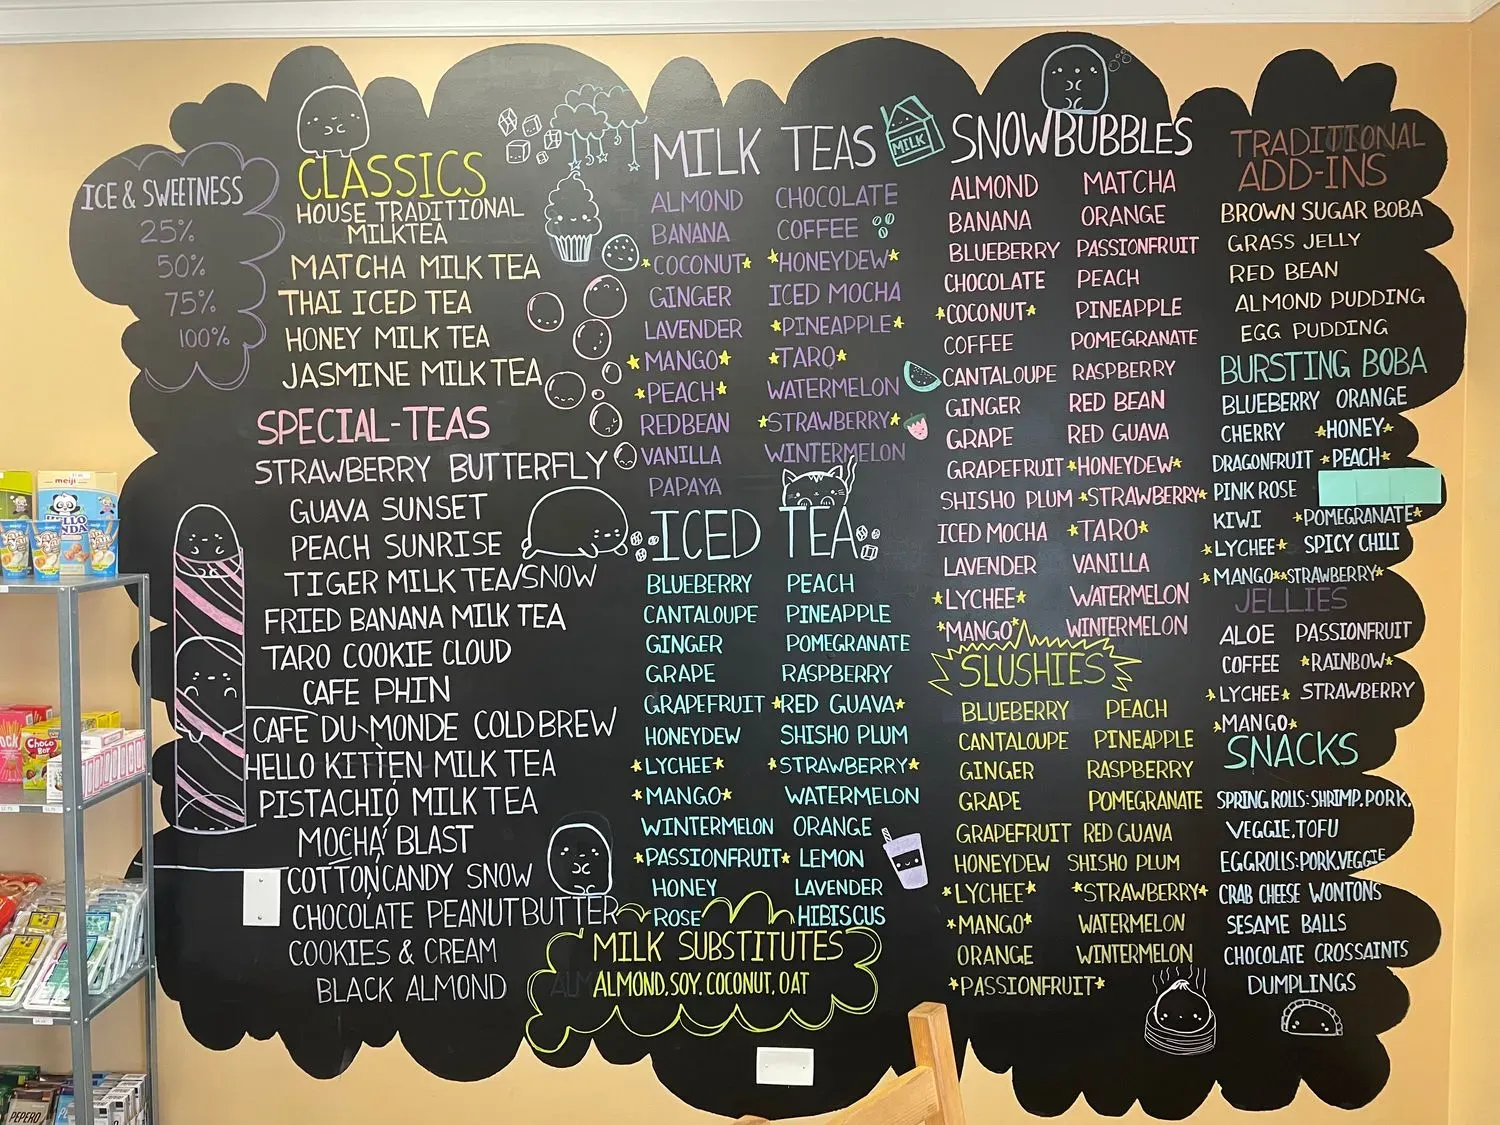 ICE & SWEETNESS
25%
50%
75%
100%
CLASSICS
HOUSE TRADITIONAL
MILKTEA
MATCHA MILK TEA
THAI ICED TEA
HONEY MILK TEA
JASMINE MILK TEA
SPECIAL-TEAS
STRAWBERRY BUTTERFLY
GUAVA SUNSET
PEACH SUNRISE
TIGER MILK TEA/SNOW
FRIED BANANA MILK TEA
TARO COOKIE CLOUD
CAFE PHIN
CAFE DU MONDE COLDBREW
HELLO KITTEN MILK TEA
PISTACHIO MILK TEA
MOCHA BLAST
COTTONCANDY SNOW
CHOCOLATE PEANUTBUTTER
COOKIES & CREAM
BLACK ALMOND
MILK TEAS
ALMOND CHOCOLATE
BANANA COFFEE
*COCONUT* *HONEYDEW*
GINGER ICED MOCHA
LAVENDER *PINEAPPLE*
*MANGO* *TARO*
*PEACH* WATERMELON
REDBEAN *STRAWBERRY*
VANILLA WINTERMELON
PAPAYA
MILK
ICED TEA
BLUEBERRY PEACH
CANTALOUPE PINEAPPLE
GINGER POMEGRANATE
GRAPE RASPBERRY
GRAPEFRUIT *RED GUAVA*
HONEYDEW SHISHO PLUM
*LYCHEE* *STRAWBERRY*
*MANGO* WATERMELON
WINTERMELON ORANGE
*PASSIONFRUIT* LEMON
HONEY LAVENDER
ROSE HIBISCUS
MILK SUBSTITUTES
ALMOND, SOY, COCONUT, OAT
SNOWBUBBLES
ALMOND MATCHA
BANANA ORANGE
BLUEBERRY PASSIONFRUIT
CHOCOLATE PEACH
*COCONUT* PINEAPPLE
COFFEE POMEGRANATE
CANTALOUPE RASPBERRY
GINGER RED BEAN
GRAPE RED GUAVA
GRAPEFRUIT *HONEYDEW*
SHISHO PLUM *STRAWBERRY*
ICED MOCHA *TARO*
LAVENDER VANILLA
*LYCHEE* WATERMELON
*MANGO* WINTERMELON
SLUSHIES
BLUEBERRY PEACH
CANTALOUPE PINEAPPLE
GINGER RASPBERRY
GRAPE POMEGRANATE
GRAPEFRUIT RED GUAVA
HONEYDEW SHISHO PLUM
*LYCHEE* *STRAWBERRY*
*MANGO* WATERMELON
ORANGE WINTERMELON
*PASSIONFRUIT*
TRADITIONAL
ADD-INS
BROWN SUGAR BOBA
GRASS JELLY
RED BEAN
ALMOND PUDDING
EGG PUDDING
BURSTING BOBA
BLUEBERRY ORANGE
CHERRY *HONEY*
DRAGONFRUIT *PEACH*
PINK ROSE
KIWI *POMEGRANATE*
*LYCHEE* SPICY CHILI
*MANGO* *STRAWBERRY*
JELLIES
ALOE PASSIONFRUIT
COFFEE *RAINBOW*
*LYCHEE* STRAWBERRY
*MANGO*
SNACKS
SPRING ROLLS: SHRIMP, PORK,
VEGGIE, TOFU
EGGROLLS: PORK, VEGGIE
CRAB CHEESE WONTONS
SESAME BALLS
CHOCOLATE CROSSAINTS
DUMPLINGS
meiji
HELLO
PANDA
Choco
PEPERO